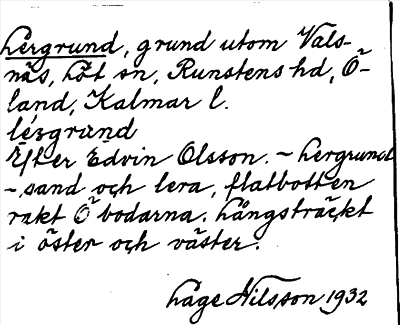 Lergrund, grund utom Vals-
näs, Löt sn, Runstens hd, Ö-
land, Kalmar l.
lé̱rgrand
Efter Edvin Olsson. – Lergrund
– sand och lera, flatbotten
rakt Ö bodarna. Långsträckt
i öster och väster.
Låge Nilsson 1932